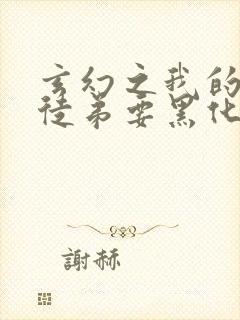 玄幻之我的
徒弟要黑化
謝赫